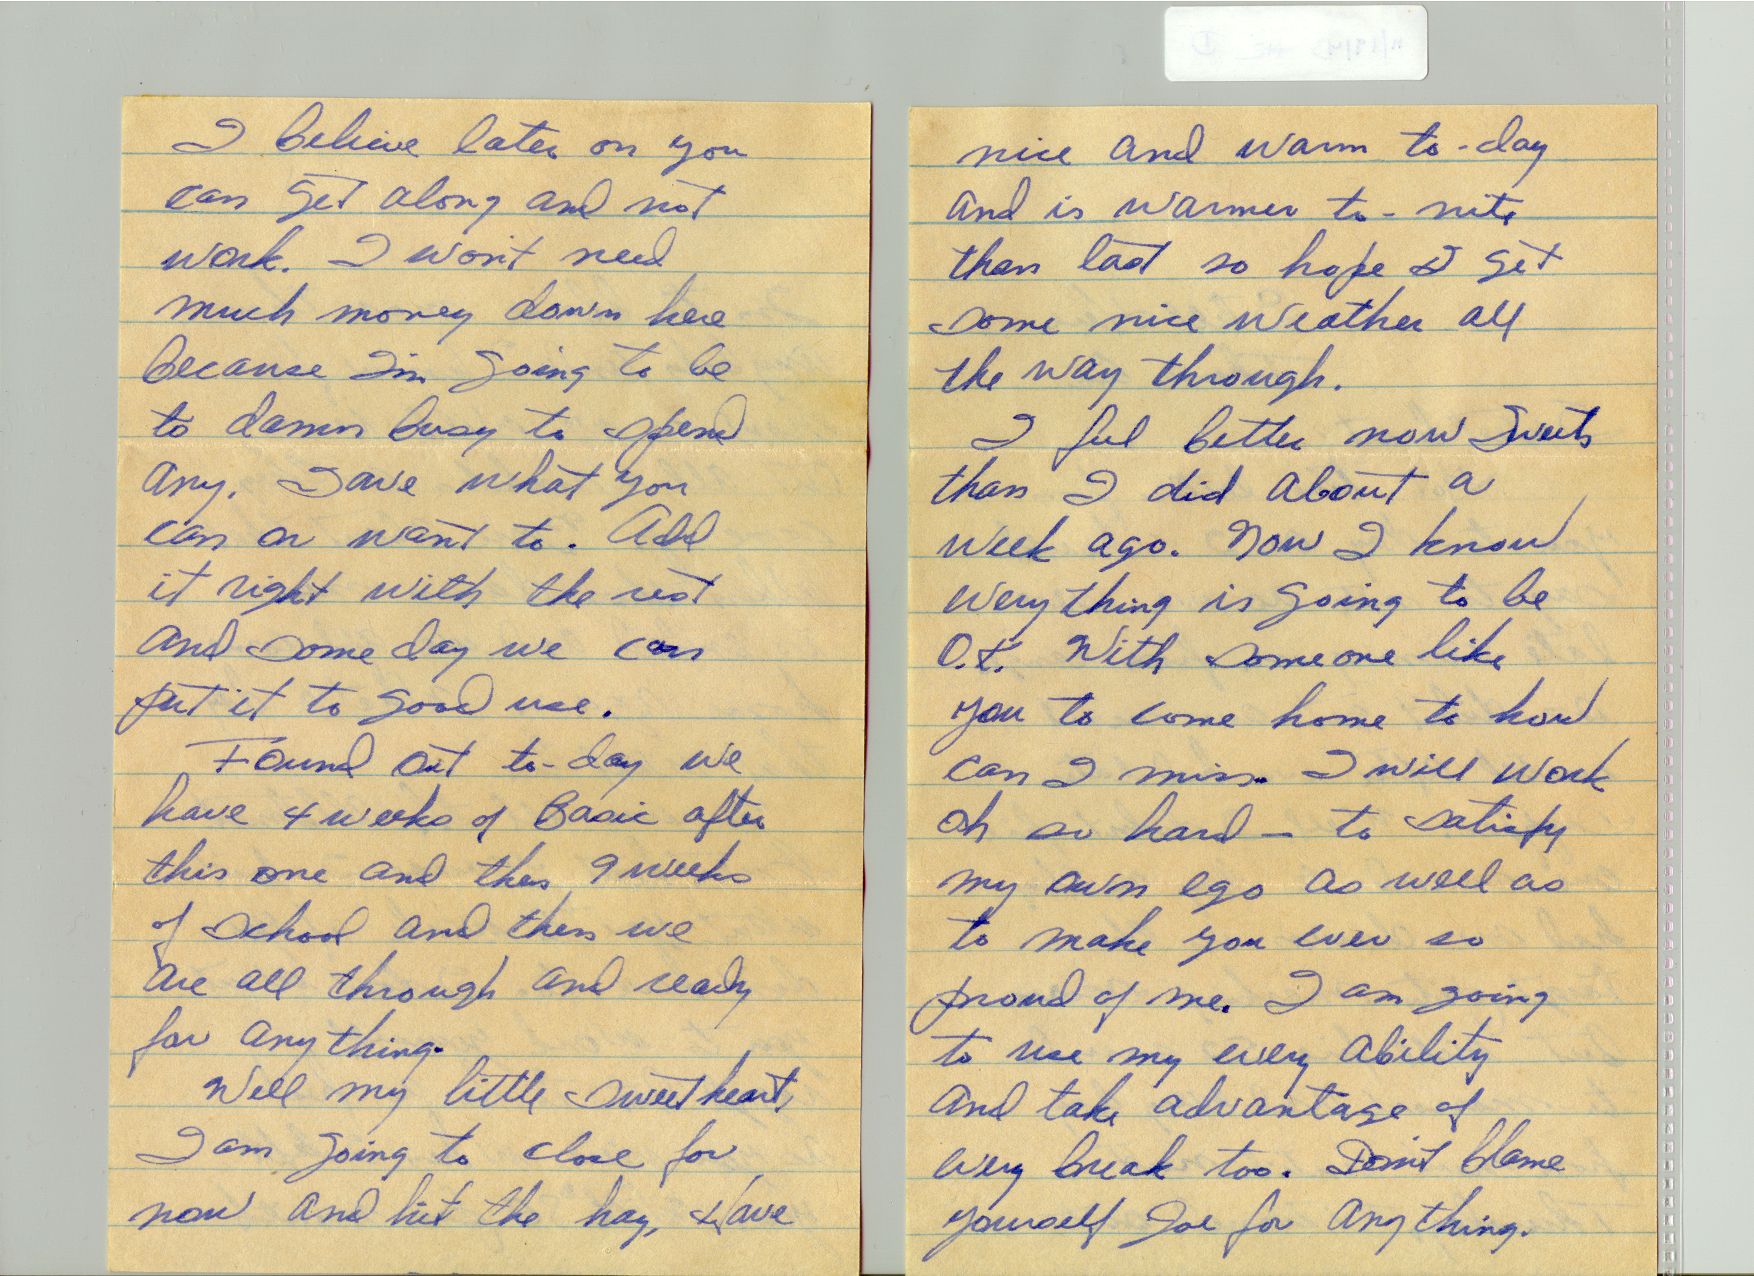 I believe later on you
can get along and not
work. I won't need
much money down here
because I'm going to be
to damn busy to spend
any. Save what you
can or want to. Add
it right with the rest
and some day we can
put it to good use.
Found out to-day we
have 4 weeks of Basic after
this one and then 9 weeks
of school and then we
are all through and ready
for anything.
Well my little sweetheart,
I am going to close for
now and hit the hay, Have
nice and warm to-day
and is warmer to-nite
than last so hope I get
some nice weather all
the way through.
I feel better now Sweets
than I did about a
week ago. Now I know
everything is going to be
O.K. With someone like
you to come home to how
can I miss. I will work
oh so hard - to satisfy
my own ego as well as
to make you ever so
proud of me. I am going
to use my every ability
and take advantage of
every break too. Don't blame
yourself for anything.